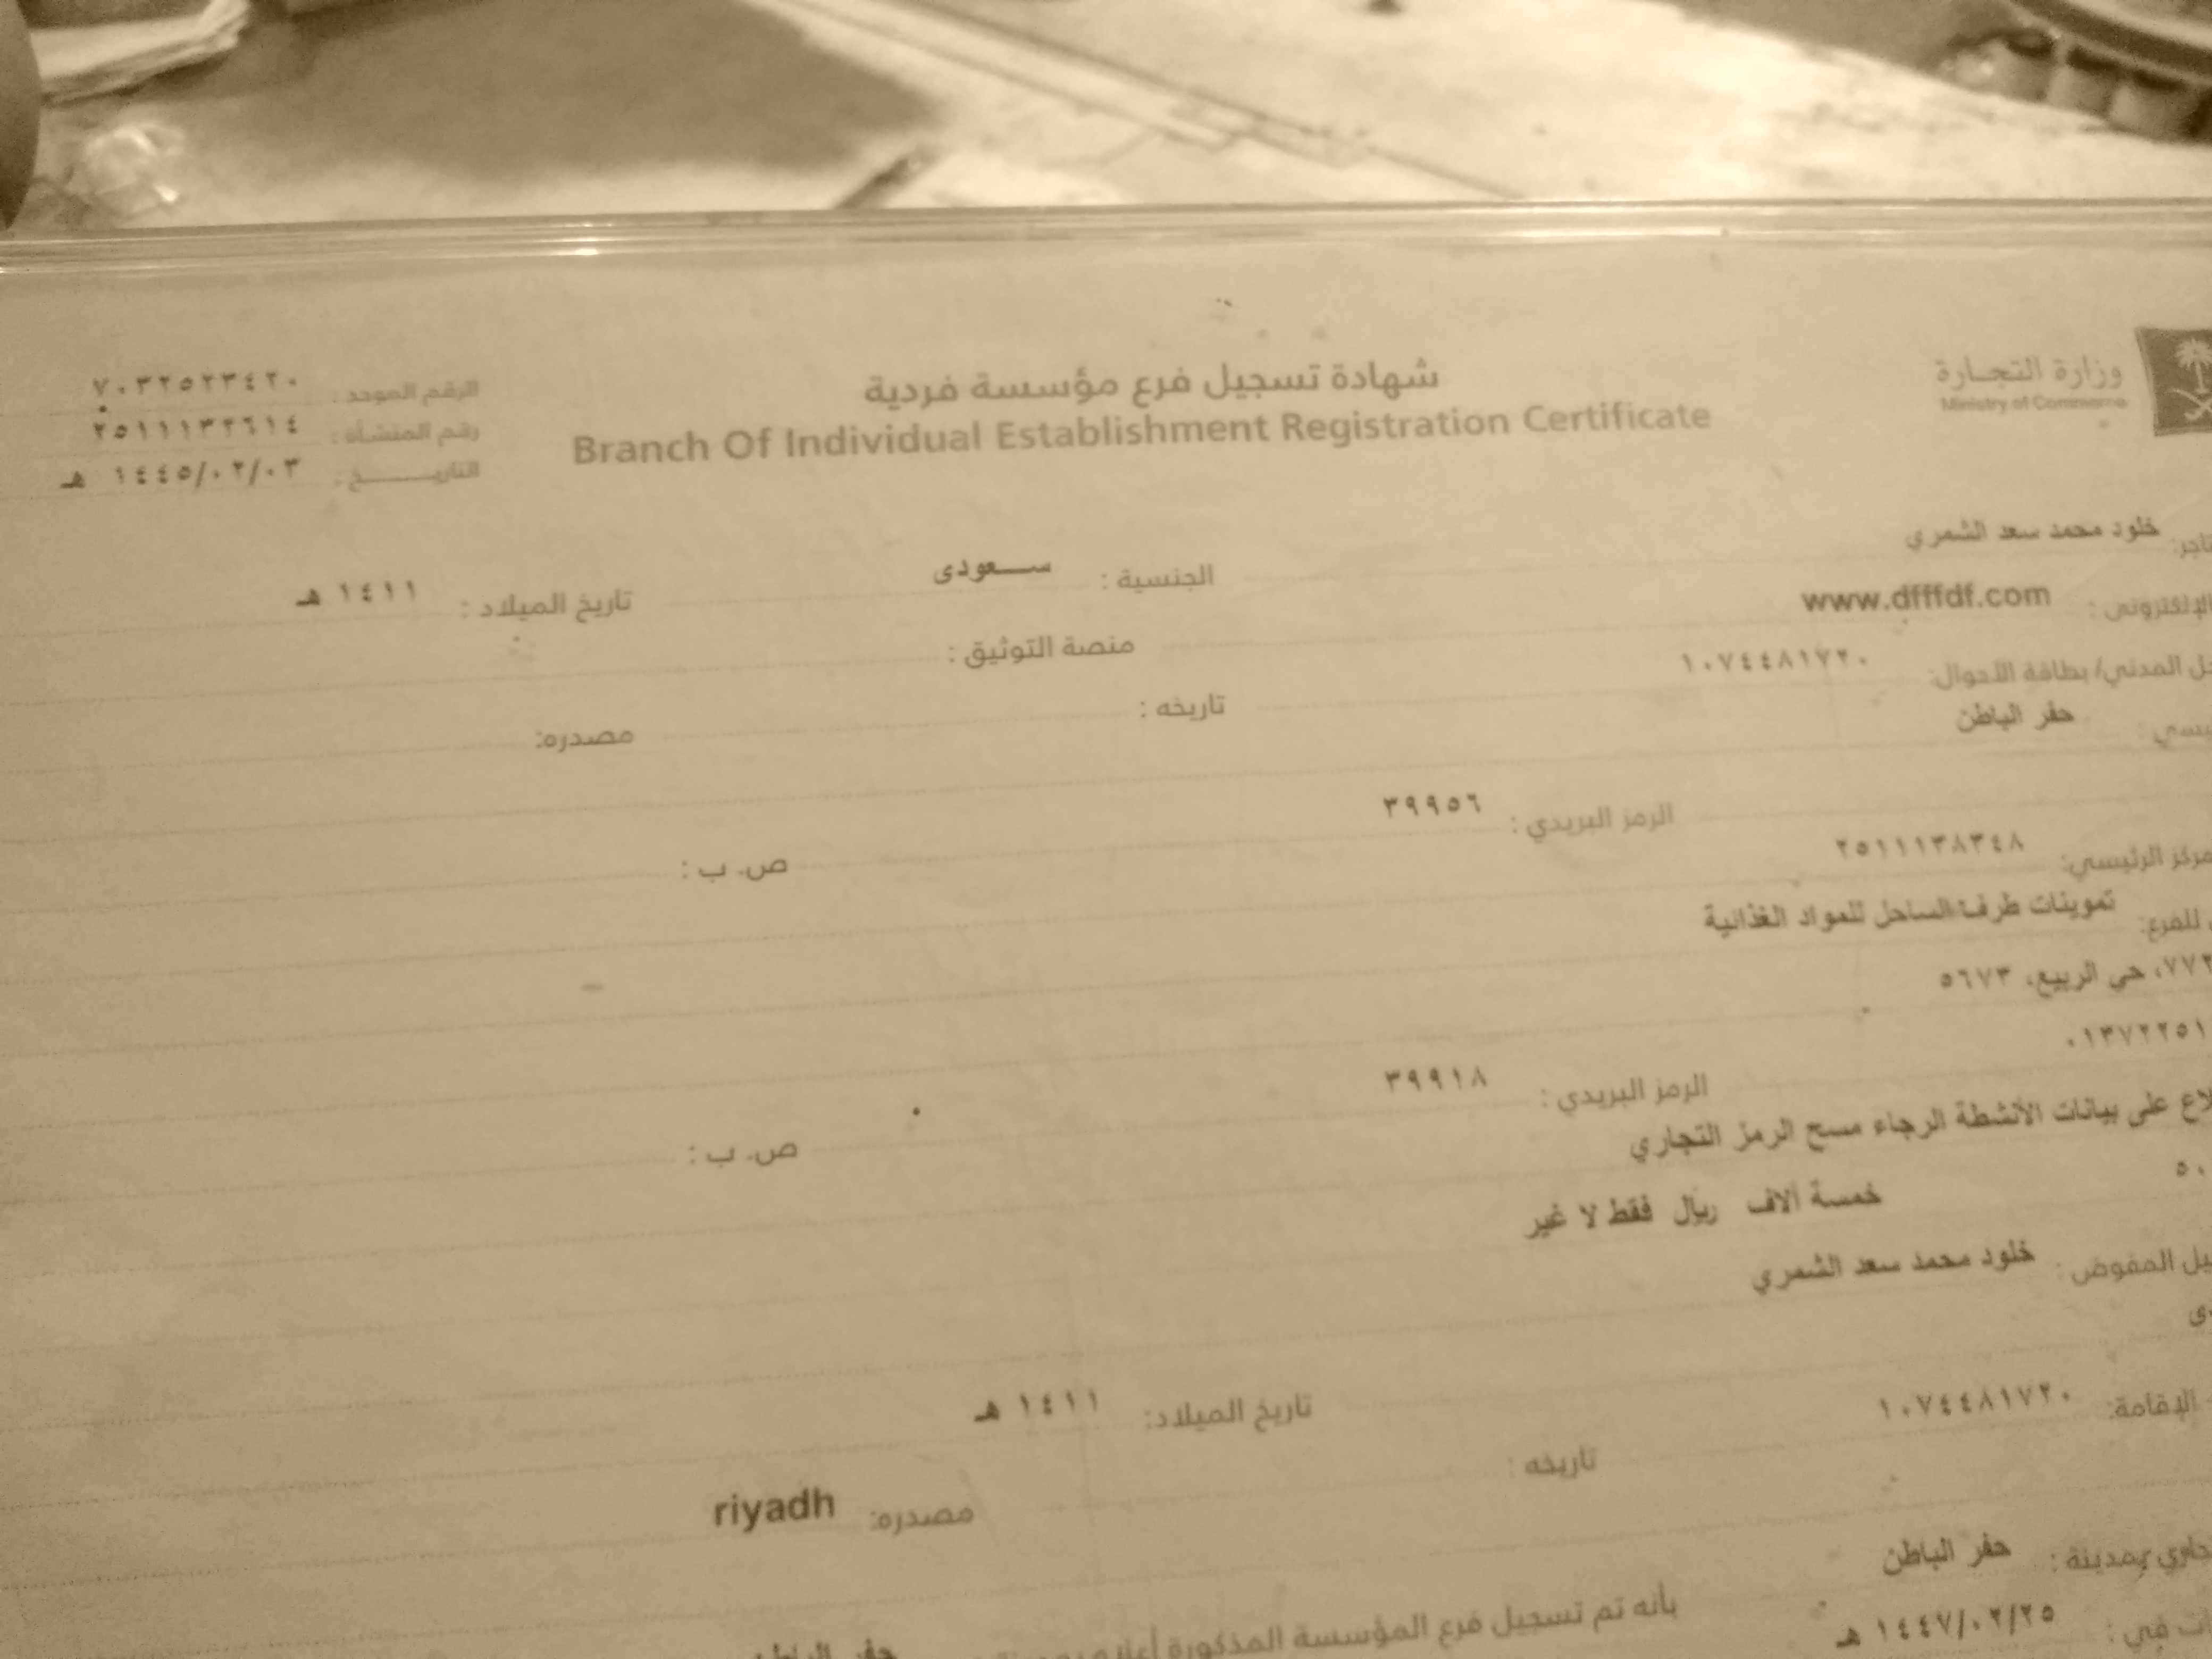 وزارة التجـارة
Ministry of Commerce
شهادة تسجيل فرع مؤسسة فردية
Branch Of Individual Establishment Registration Certificate
الرقم الموحد : ٧٠٣٢٥٢٣٤٢٠
رقم المنشأة : ٢٥١١١٣٢٦١٤
التاريـــــخ : ١٤٤٥/٠٢/٠٣ هـ
خلود محمد سعد الشمري
الجنسية : ســـعودى تاريخ الميلاد : ١٤١١ هـ
الإلكتروني : www.dfffdf.com منصة التوثيق :
المدني/ بطاقة الأحوال: ١٠٧٤٤٨١٧٢٠ تاريخه : مصدره:
حفر الباطن
الرمز البريدي : ٣٩٩٥٦ ص. ب :
الرئيسي: ٢٥١١١٣٨٣٤٨
للفرع: تموينات طرف الساحل للمواد الغذائية
حي الربيع، ٥٦٧٣
الرمز البريدي : ٣٩٩١٨ ص. ب :
على بيانات الأنشطة الرجاء مسح الرمز التجاري
خمسة آلاف ريال فقط لا غير
المفوض : خلود محمد سعد الشمري
الإقامة: ١٠٧٤٤٨١٧٢٠ تاريخ الميلاد: ١٤١١ هـ
تاريخه : مصدره: riyadh
بمدينة : حفر الباطن
بأنه تم تسجيل فرع المؤسسة المذكورة أعلاه
في : ١٤٤٧/٠٢/٢٥ هـ